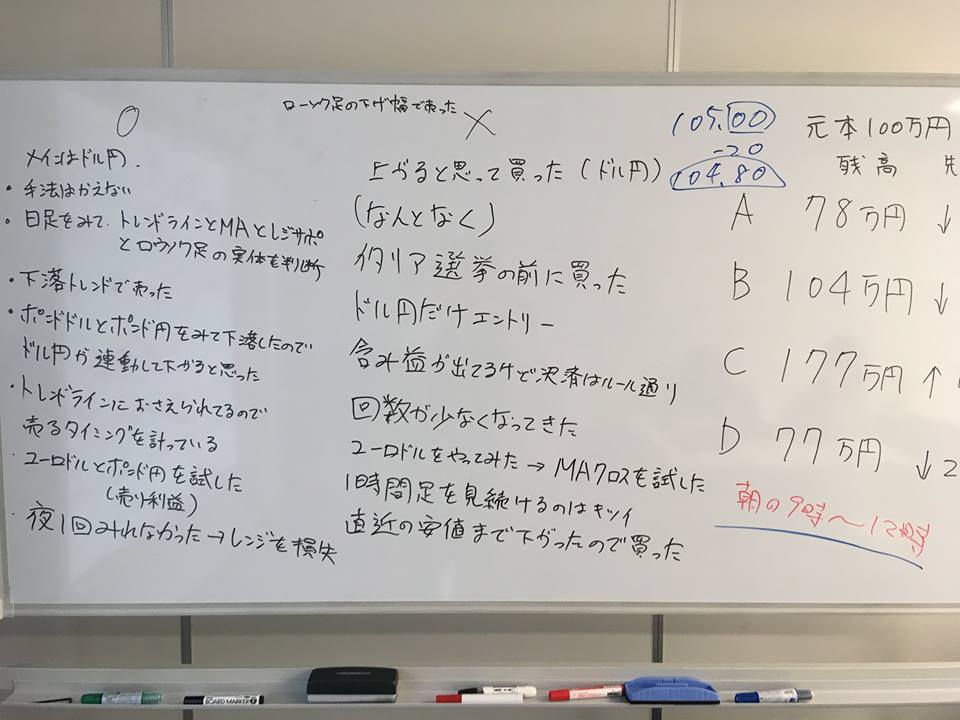 ○
メインはドル円.
・手法はかえない
・日足をみて、トレンドラインとMAとレジサポ
とロウソク足の実体を判断
・下落トレンドで売った
・ポンドドルとポンド円をみて下落したので
ドル円が連動して下がると思った
・トレンドラインにおさえられてるので
売るタイミングを計っている
・ユーロドルとポンド円を試した
(売り利益)
・夜1回みれなかった→レンジを損失
ローソク足の下げ幅で売った
×
上がると思って買った(ドル円)
(なんとなく)
イタリア選挙の前に買った
ドル円だけエントリー
含み益が出てるけど決済はルール通り
回数が少なくなってきた
ユーロドルをやってみた→MAクロスを試した
1時間足を見続けるのはキツイ
直近の安値まで下がったので買った
105.00
-20
104.80
元本100万円
残高 先
A 78万円 ↓
B 104万円 ↓
C 177万円 ↑
D 77万円 ↓2
朝の9時～12時
BOARD MARKER